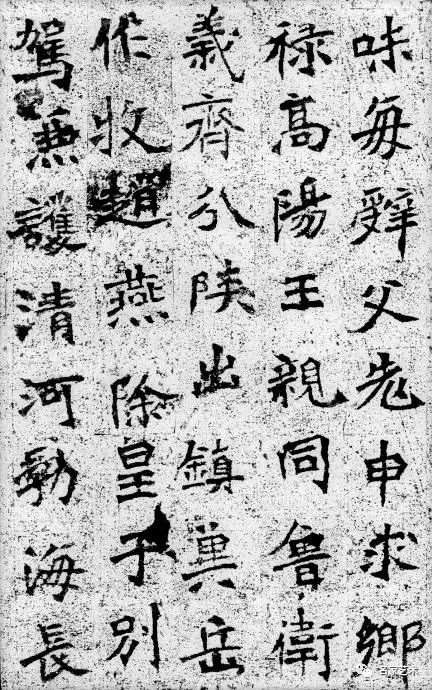 味每辭父老申求鄉
禄高陽王親同魯衛
義齊分陝出鎮冀岳
作牧趙燕除皇子別
駕兼護清河勃海長